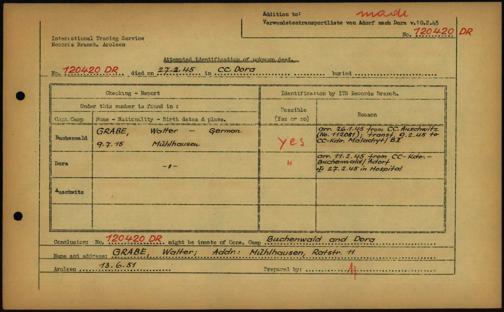 Addition to: made
Verwundetentransportliste von Adorf nach Dora v.10.2.45
No. 120420 DR
International Tracing Service
Records Branch, Arolsen
Attempted identification of unknown dead.
No. 120420 DR died on 27.2.45 in CC. Dora buried
Checking - Report
Identification by ITS Records Branch.
Under this number is found in :
Possible (Yes or no)
Reason
Conc. Camp Name - Nationality - Birth dates & place.
Buchenwald GRABE, Walter - German
9.7.15 Mühlhausen
yes
arr. 26.1.45 from CC Auschwitz
(No. 112081); transf. 9.2.45 to
CC-Kdr.
Dora -"- "
arr. 11.2.45 from CC-Kdr.-
Buchenwald/Adorf
27.2.45 in Hospital
Auschwitz
Conclusion: No. 120420 DR might be inmate of Conc. Camp Buchenwald and Dora
Name and address: GRABE, Walter; Addr: Mühlhausen, Ratstr. 11
Arolsen 13.6.51 Prepared by: